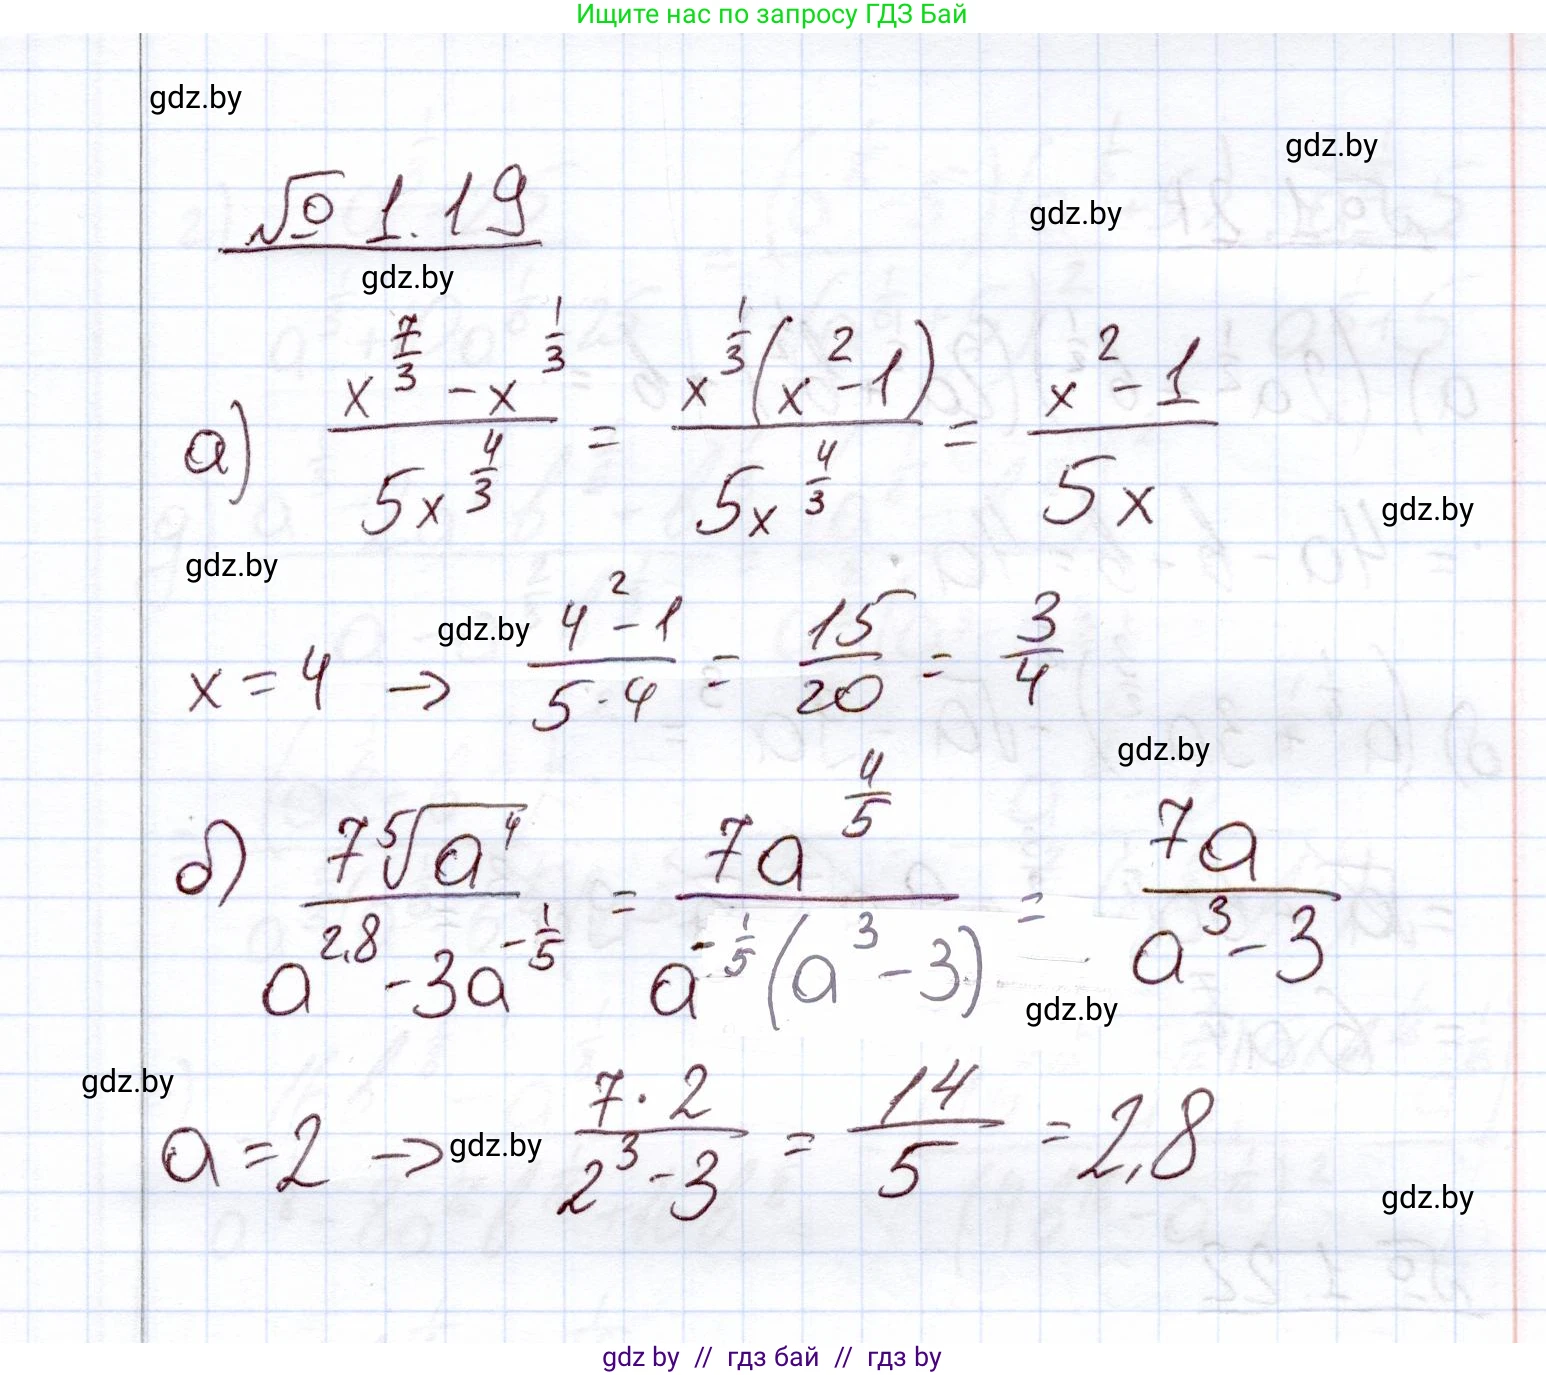 Ищите нас по запросу ГДЗ Бай
gdz.by
gdz.by
gdz.by
№ 1.19
gdz.by
а) (x^(7/3) - x^(1/3))/(5x^(4/3)) = (x^(1/3)(x^2 - 1))/(5x^(4/3)) = (x^2 - 1)/(5x)
gdz.by
gdz.by
x = 4 → gdz.by (4^2 - 1)/(5·4) = 15/20 = 3/4
gdz.by
б) (7⁵√(a^4))/(a^(2,8) - 3a^(-1/5)) = (7a^(4/5))/(a^(-1/5)(a^3 - 3)) = (7a)/(a^3 - 3)
gdz.by
gdz.by
a = 2 → gdz.by (7·2)/(2^3 - 3) = 14/5 = 2,8
gdz.by
gdz by // гдз бай // гдз by